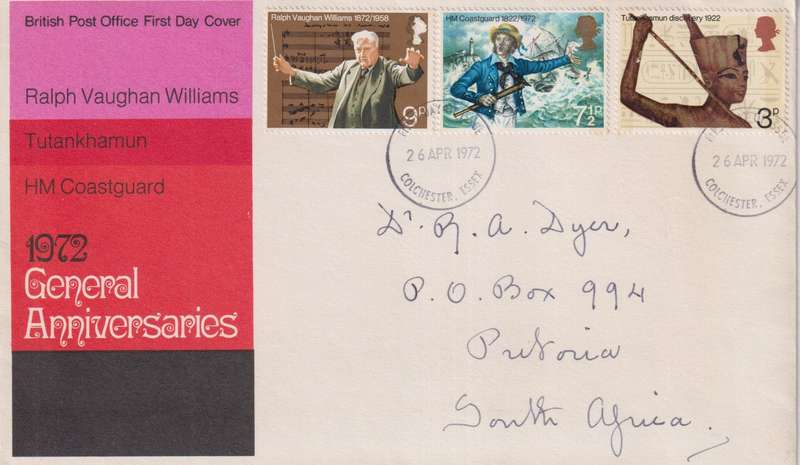 British Post Office First Day Cover
Ralph Vaughan Williams
Tutankhamun
HM Coastguard
1972
General
Anniversaries
Ralph Vaughan Williams 1872/1958
9p
HM Coastguard 1822/1972
7½p
Tutankhamun discovery 1922
3p
26 APR 1972
COLCHESTER, ESSEX
26 APR 1972
COLCHESTER, ESSEX
Dr. R. A. Dyer,
P. O. Box 994
Pretoria
South Africa.